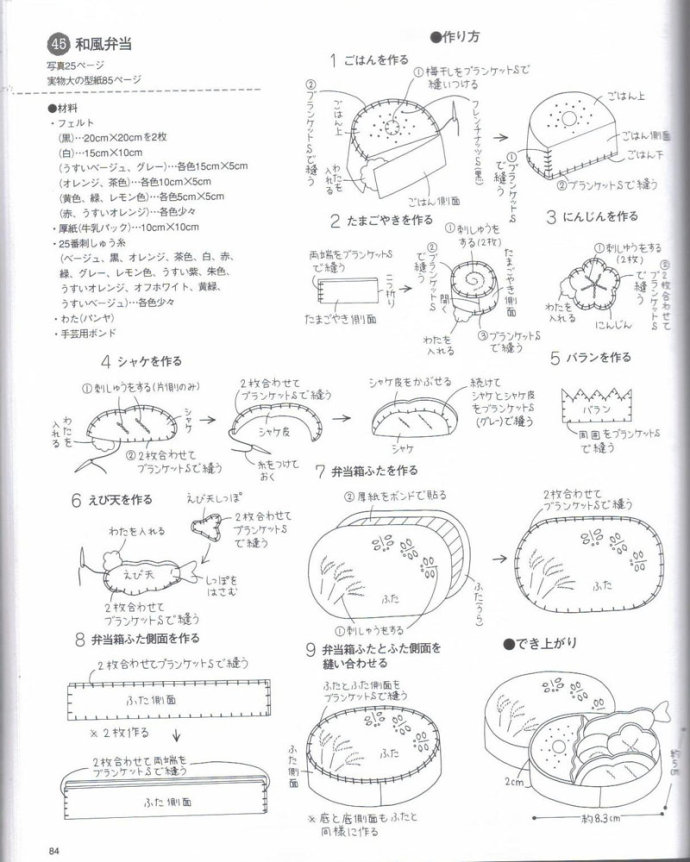 45 和風弁当
写真25ページ
実物大の型紙85ページ
●材料
・フェルト
(黒)…20cm×20cmを2枚
(白)…15cm×10cm
(うすいベージュ、グレー)…各色15cm×5cm
(オレンジ、茶色)…各色10cm×5cm
(黄色、緑、レモン色)…各色5cm×5cm
(赤、うすいオレンジ)…各色少々
・厚紙(牛乳パック)…10cm×10cm
・25番刺しゅう糸
(ベージュ、黒、オレンジ、茶色、白、赤、
緑、グレー、レモン色、うすい紫、朱色、
うすいオレンジ、オフホワイト、黄緑、
うすいベージュ)…各色少々
・わた(パンヤ)
・手芸用ボンド
●作り方
1 ごはんを作る
①梅干しをブランケットSで
縫いつける
②ブランケットSで縫う
ごはん上
フレンチナッツS(黒)
わたを
入れる
ごはん側面
ごはん上
ごはん側面
ごはん下
①ブランケットSで縫う
②ブランケットSで縫う
2 たまごやきを作る
両端をブランケットS
で縫う
二つ折り
たまごやき側面
①刺しゅうを
する(2枚)
②ブランケットSで縫う
開く
たまごやき側面
わたを
入れる
③ブランケットS
で縫う
3 にんじんを作る
①刺しゅうをする
(2枚)
②2枚合わせて
ブランケットS
で縫う
わたを
入れる
にんじん
4 シャケを作る
①刺しゅうをする(片側のみ)
わたを
入れる
シャケ
②2枚合わせて
ブランケットSで縫う
2枚合わせて
ブランケットSで縫う
シャケ皮
糸をつけて
おく
シャケ皮をかぶせる
続けて
シャケとシャケ皮
をブランケットS
(グレー)で縫う
シャケ
5 バランを作る
バラン
周囲をブランケットS
で縫う
6 えび天を作る
えび天しっぽ
2枚合わせて
ブランケットS
で縫う
わたを入れる
えび天
しっぽを
はさむ
2枚合わせて
ブランケットSで縫う
7 弁当箱ふたを作る
②厚紙をボンドで貼る
ふた
ふた(うら)
①刺しゅうをする
2枚合わせて
ブランケットSで縫う
ふた
8 弁当箱ふた側面を作る
2枚合わせてブランケットSで縫う
ふた側面
※2枚作る
2枚合わせて両端を
ブランケットSで縫う
ふた側面
9 弁当箱ふたとふた側面を
縫い合わせる
ふたとふた側面を
ブランケットSで縫う
ふた
ふた側面
※底と底側面もふたと
同様に作る
●でき上がり
2cm
約5cm
約8.3cm
84